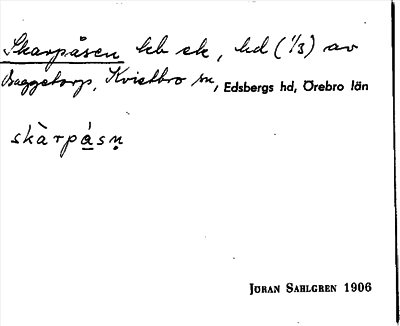 Skarpåsen kb ek, hd (1/3) av
Baggetorp, Kvistbro sn, Edsbergs hd, Örebro län
skàrpásṇ
JÖRAN SAHLGREN 1906